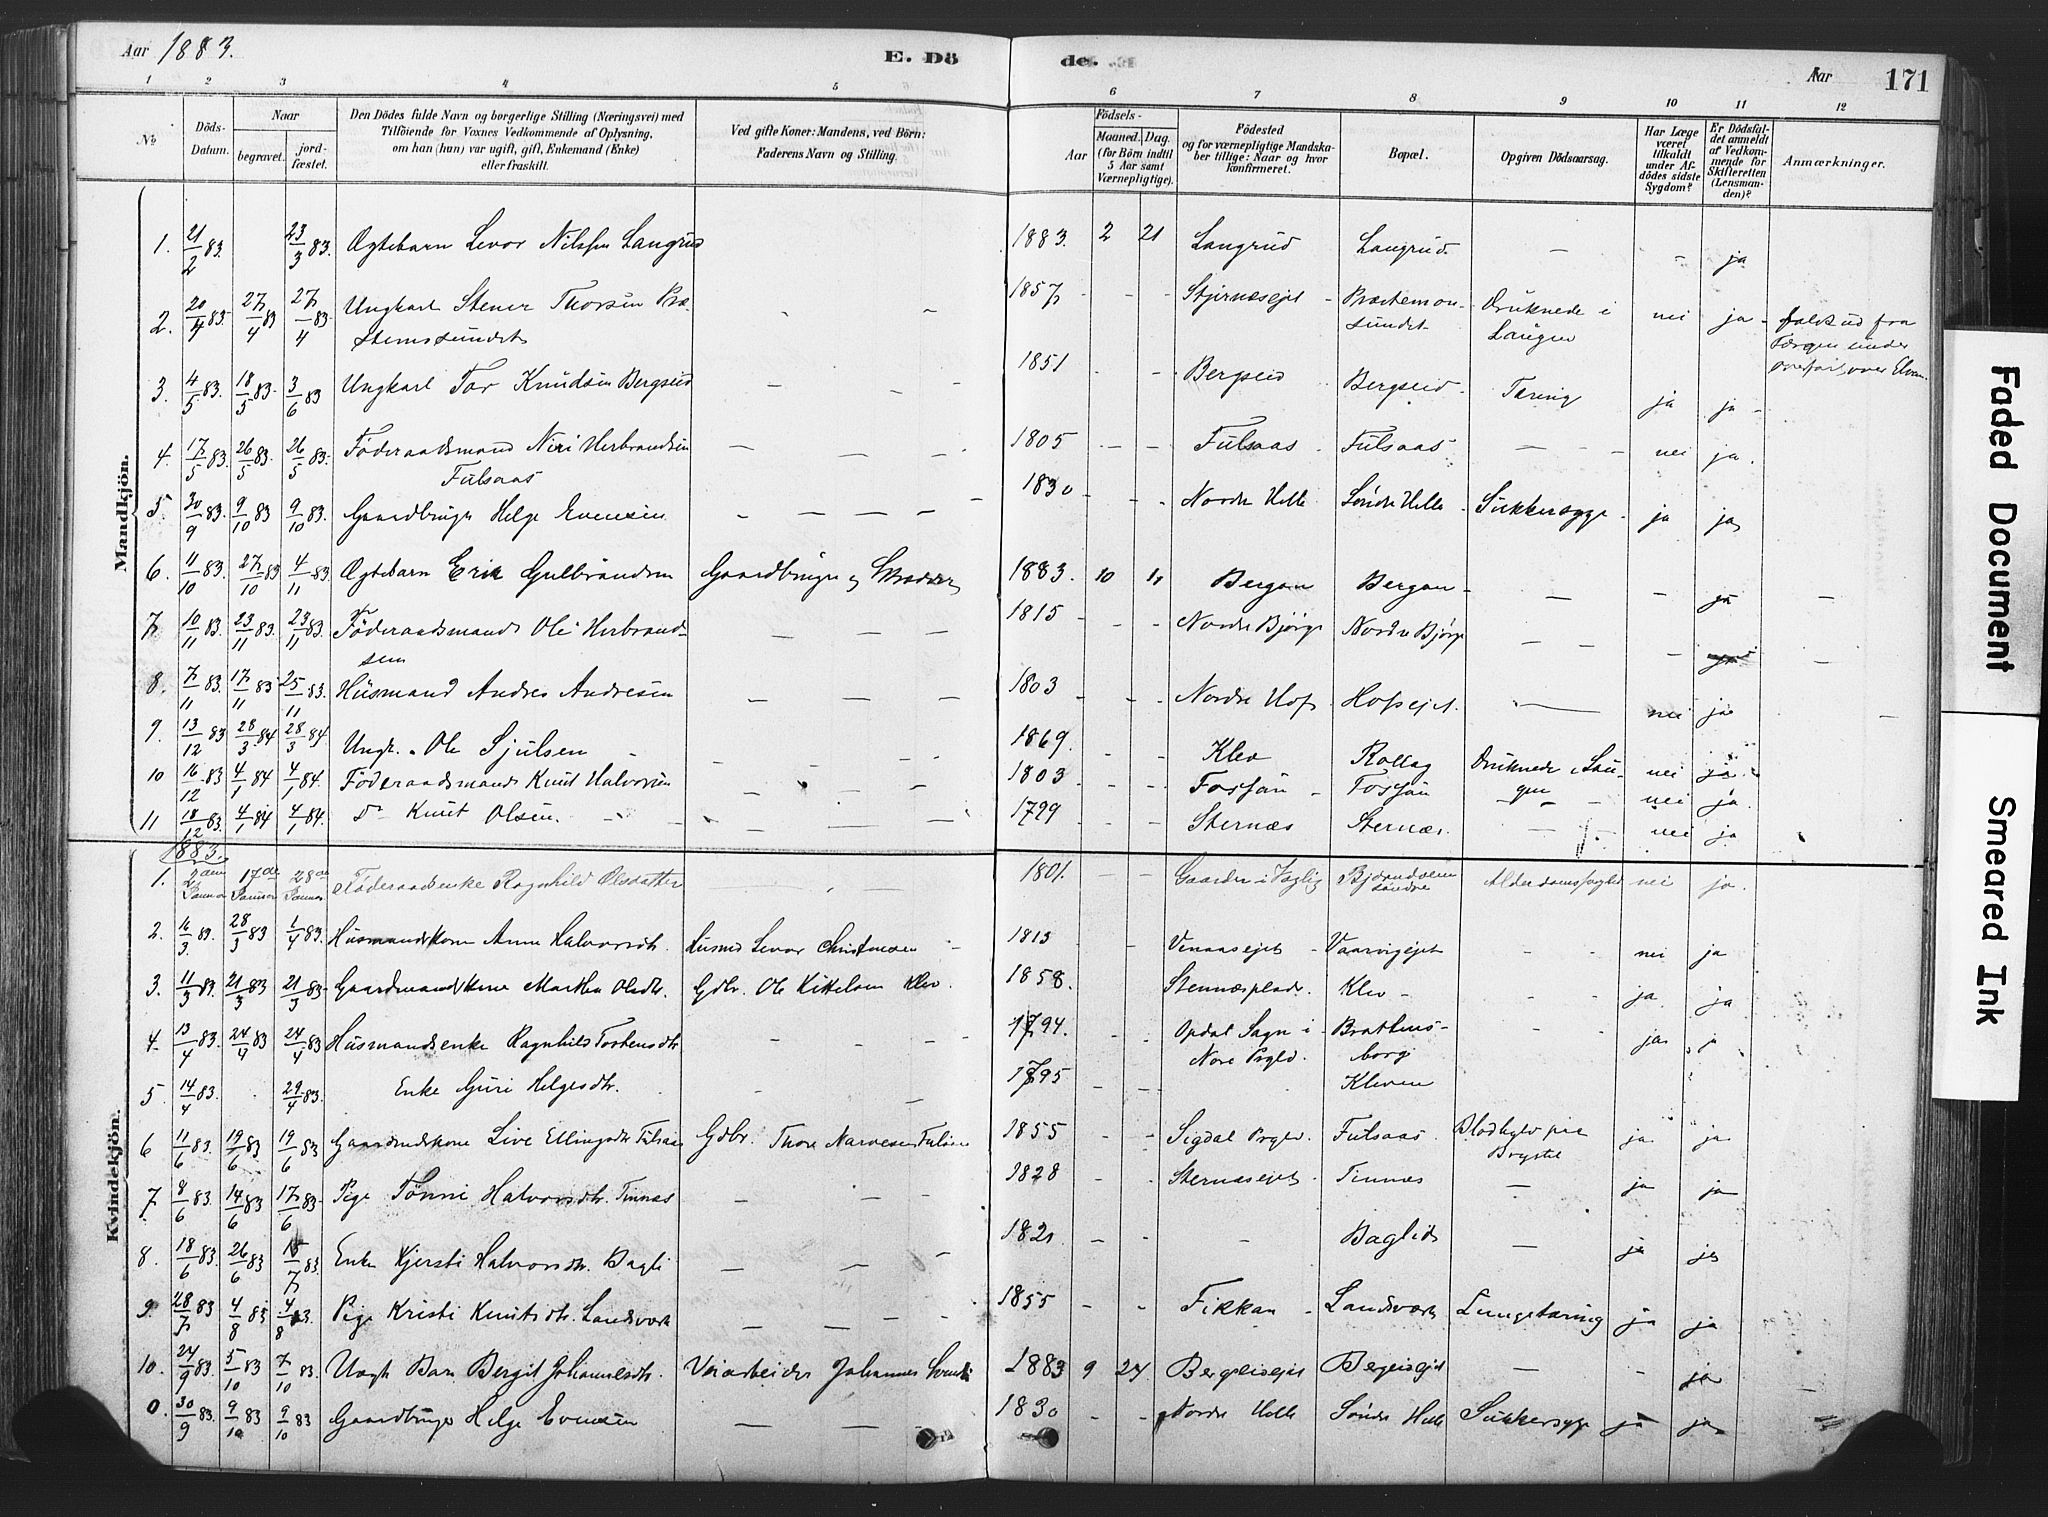 Aar 1883.
E. Dö
de.
Aar
171
1 2 3 4 5 6 7 8 9 10 11 12
No.
Döds-Datum.
Naar
begravet.
jord-fæstet.
Den Dödes fulde Navn og borgerlige Stilling (Næringsvei) med
Tilföiende for Voxnes Vedkommende af Oplysning,
om han (hun) var ugift, gift, Enkemand (Enke)
eller fraskilt.
Ved gifte Koner: Mandens, ved Börn:
Faderens Navn og Stilling.
Födsels-
Aar
Maaned. Dag.
(for Börn indtil
5 Aar samt
Værnepligtige).
Födested
og for værnepligtige Mandska-
ber tillige: Naar og hvor
konfirmeret.
Bopæl.
Opgiven Dödsaarsag.
Har Læge
været
tilkaldt
under Af-
dödes sidste
Sygdom?
Er Dödsfal-
det anmeldt
af Vedkom-
mende for
Skifteretten
(Lensman-
den)?
Anmærkninger.
Mandkjön.
1. 21/2 83. 23/3 83. Ægtebarn Levor Nilssen Langrud 1883. 2 21 Langrud Langrud. — - ja
2. 20/4 83. 27/4 83 27/4 83. Ungkarl Stener Thorsen Præ-
stemssundet - - 1857 - - Stjernæsejet - Præstemon-
sundet. Druknede i
Laugen nei ja - faldt ud fra
Færgen under
overfart over Elven.
3. 4/5 83. 18/5 83. 3/6 83 Ungkarl Tor Knudsen Bergseid - - 1851 - - Bergseid Bergseid. Tæring ja ja -
4. 17/5 83. 26/5 83. 26/5 83. Föderaadsmand Niri Herbrandsen
Fulsaas — — — 1805 - - Fulsaas - Fulsaas - — nei ja.
5 30/9 83. 9/10 83 9/10 83. Gaardbruger Helge Evensen — — — — 1830 - - Nordre Helle Söndre Helle - Sukkersyge - ja ja
6. 11/10 83. 27/10 83 4/11 83. Ægtebarn Erik Gulbrandsen Gaardbruger og Skrædder 1883. 10 11 Bergan Bergan - — - ja —
7. 10/11 83. 23/11 83. 23/11 83. Föderaadsmand Ole Herbrand-
sen — — — — 1815 - - - Nordre Bjørge Nordre Bjørge — - ja —
8. 7/11 83. 17/11 83 25/11 83. Husmand Andres Andresen — — — — 1803 - - - Nordre Hof. Hofsejet. — nei ja —
9. 13/12 83 28/3 84 28/3 84 Ungk. Ole Sjulsen - 1869. - - Klev Rollag Druknede i Lau-
gen nei ja
10 16/12 83 4/1 84 4/1 84. Föderaadsmand Knut Halvorsen 1803 - - - Fosfän - Fosfän - - nei ja
11 18/12 83. 4/1 84 4/1 84. do Knut Olsen. - - — — — 1799 - - - Sternæs Sternæs. — nei ja
Kvindekjön.
1883.
1. 2den Januar 17de Januar 28de Januar Föderaadsenke Ragnhild Olsdatter 1801. - - Bjørndalen
søndre nei ja.
2. 16/3 83. 28/3 83 1/4 83. Husmandskone Anne Halvorsdtr. Husmd Levor Christensen - 1813 - - Vinaasejet - Vaarvigejet - - nei ja
3. 11/3 83. 21/3 83 21/3 83. Gaardmandskone Marthea Olsdtr. Gdbr. Ole Kittelsen Klev. 1858. - Stennæsplads. Klev - - - ja ja
4. 13/4 83. 24/4 83 24/4 83 Husmandsenke Ragnhild Torstensdtr — — — 1794. - - Opdal Sogn i
Nore Prgld. Brattens-
borg ja ja
5 14/4 83. 29/4 83. Enke Guri Helgesdtr. - - 1795 - - - Kleven
6 11/6 83. 19/6 83 19/6 83 Gaardmdskone Live Ellingsdtr Fulsaas Gdbr. Thore Narvesen Fulsaas 1855 - - Sigdal Prgld. Fulsaas. Blodhyld paa
Brystet ja ja
7. 8/6 83 14/6 83 17/6 83. Pige Tönni Halvorsdtr. Tinnæs — — — 1828 - - Sternæsejet Tinnæs — ja ja
8. 18/6 83 26/6 83 15/7 83. Enke Kjersti Halvorsdtr. Bagli — — — 1821 - - - Baglid — ja ja
9. 28/7 83 4/8 83 4/8 83. Pige Kristi Knutsdtr. Landsværk — — — - 1855 - - Fikkan - Landsværk Lungetæring ja ja
10. 24/9 83. 5/10 83 7/10 83. Uægt Barn Bergit Johannesdtr. Veiarbeider Johannes 1883 9 24 Bergseidejet Bergseidejet — - ja
0. 30/9 83. 9/10 83 9/10 83 Gaardbruger Helge Evensen — — — 1830 - - Nordre Helle Söndre Helle Sukkersyge ja ja
Faded Document
Smeared Ink